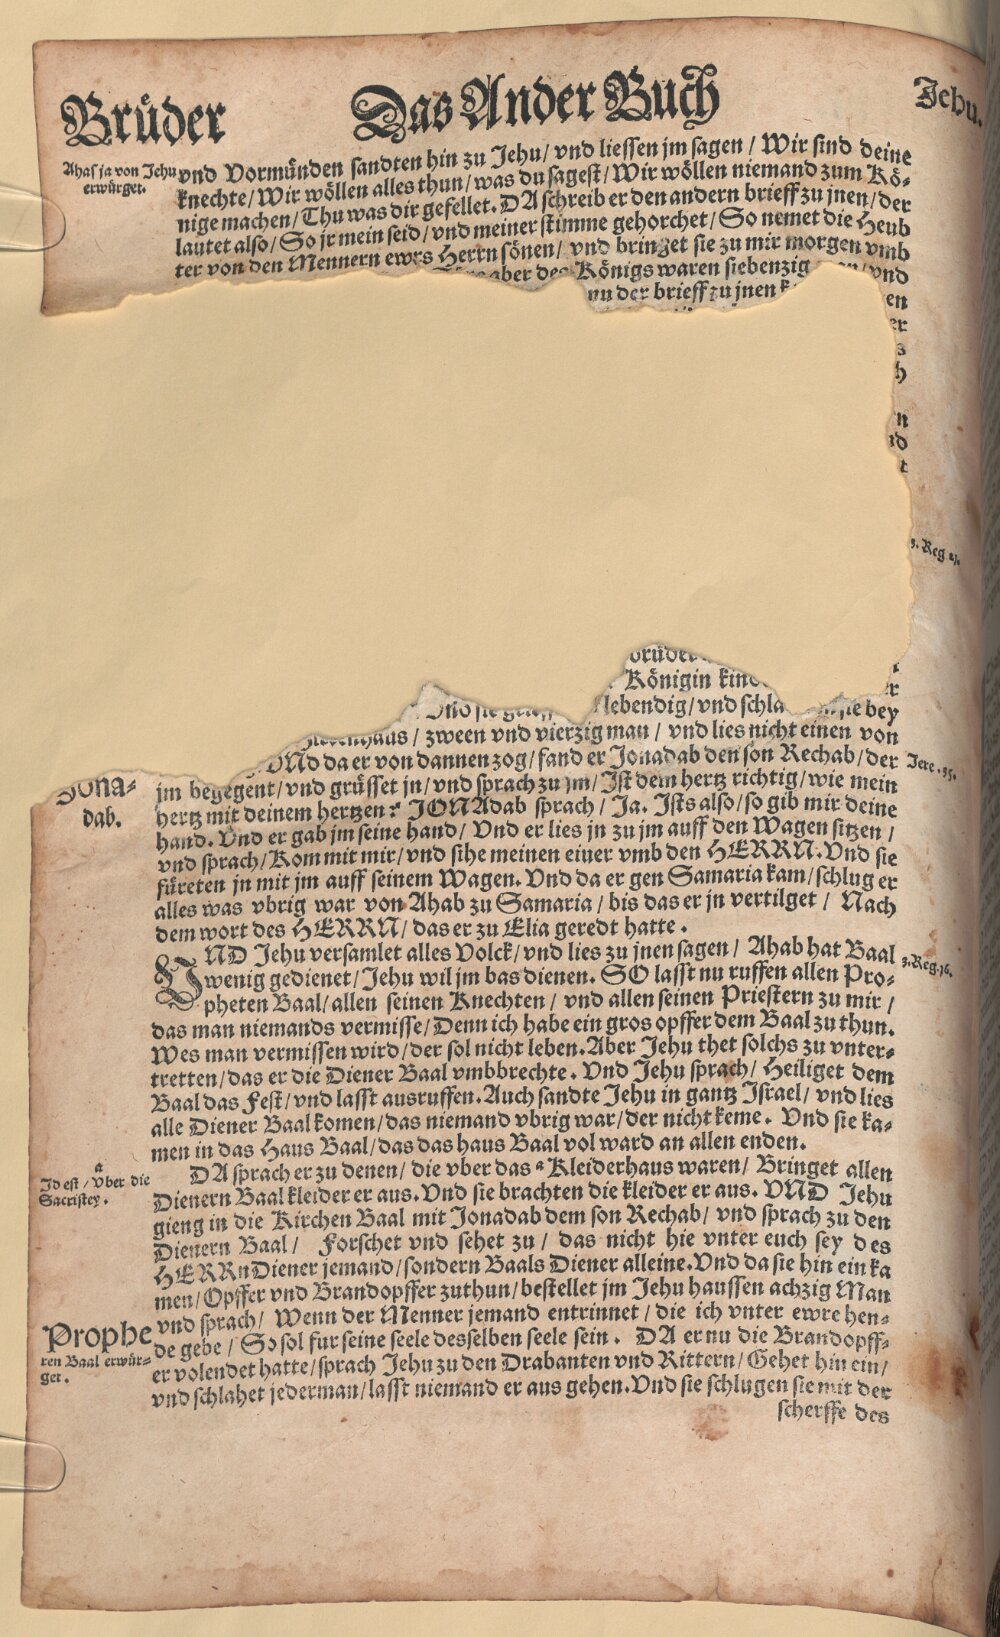 Brüder
Das Ander Buch
Jehu.
Ahas ja von Jehu
erwürget.
vnd Vormünden sandten hin zu Jehu/ vnd liessen jm sagen / Wir sind deine
knechte/ Wir wöllen alles thun/ was du sagest/ Wir wöllen niemand zum Kö-
nige machen/ Thu was dir gefellet. DA schreib er den andern brieff zu jnen/ der
lautet also/ So jr mein seid/ vnd meiner stimme gehorchet/ So nemet die Heub
ter von den Mennern ewrs Herrn sönen/ vnd bringet sie zu mir morgen vmb
aber des Königs waren siebenzig man/ vnd
nu der brieff zu jnen
en
er
s
h
n
t
3. Reg. 21.
brüder
Königin kind
er
Vnd sie lebendig/ vnd schla sie bey
/ zween vnd vierzig man / vnd lies nicht einen von
VNd da er von dannen zog/ fand er Jonadab den son Rechab/ der
Jere. 35.
Jona-
dab.
jm begegent/ vnd grüsset jn/ vnd sprach zu jm/ Ist dein hertz richtig/ wie mein
hertz mit deinem hertzen? JONAdab sprach / Ja. Ists also/ so gib mir deine
hand. Vnd er gab jm seine hand/ Vnd er lies jn zu jm auff den Wagen sitzen /
vnd sprach/ Kom mit mir/ vnd sihe meinen eiuer vmb den HERRN. Vnd sie
füreten jn mit jm auff seinem Wagen. Vnd da er gen Samaria kam/ schlug er
alles was vbrig war von Ahab zu Samaria / bis das er jn vertilget / Nach
dem wort des HERRN/ das er zu Elia geredt hatte.
VND Jehu versamlet alles Volck/ vnd lies zu jnen sagen / Ahab hat Baal
3. Reg. 16.
wenig gedienet/ Jehu wil jm bas dienen. SO lasst nu ruffen allen Pro-
pheten Baal/ allen seinen Knechten / vnd allen seinen Priestern zu mir /
das man niemands vermisse/ Denn ich habe ein gros opffer dem Baal zu thun.
Wes man vermissen wird/ der sol nicht leben. Aber Jehu thet solchs zu vnter-
tretten/ das er die Diener Baal vmbbrechte. Vnd Jehu sprach/ Heiliget dem
Baal das Fest/ vnd lasst ausruffen. Auch sandte Jehu in gantz Israel/ vnd lies
alle Diener Baal komen/ das niemand vbrig war/ der nicht keme. Vnd sie ka-
men in das Haus Baal/ das das haus Baal vol ward an allen enden.
a
Id est / vber die
Sacristey.
DA sprach er zu denen/ die vber das a Kleiderhaus waren/ Bringet allen
Dienern Baal kleider er aus. Vnd sie brachten die kleider er aus. VND Jehu
gieng in die Kirchen Baal mit Jonadab dem son Rechab/ vnd sprach zu den
Dienern Baal / Forschet vnd sehet zu / das nicht hie vnter euch sey des
HERRn Diener jemand/ sondern Baals Diener alleine. Vnd da sie hin ein ka
men/ Opffer vnd Brandopffer zuthun/ bestellet jm Jehu haussen achzig Man
vnd sprach/ Wenn der Menner jemand entrinnet / die ich vnter ewre hen-
Prophe
ten Baal erwür-
get.
de gebe / So sol fur seine seele desselben seele sein. DA er nu die Brandopff-
er volendet hatte/ sprach Jehu zu den Drabanten vnd Rittern/ Gehet hin ein/
vnd schlahet jederman/ lasst niemand er aus gehen. Vnd sie schlugen sie mit der
scherffe des